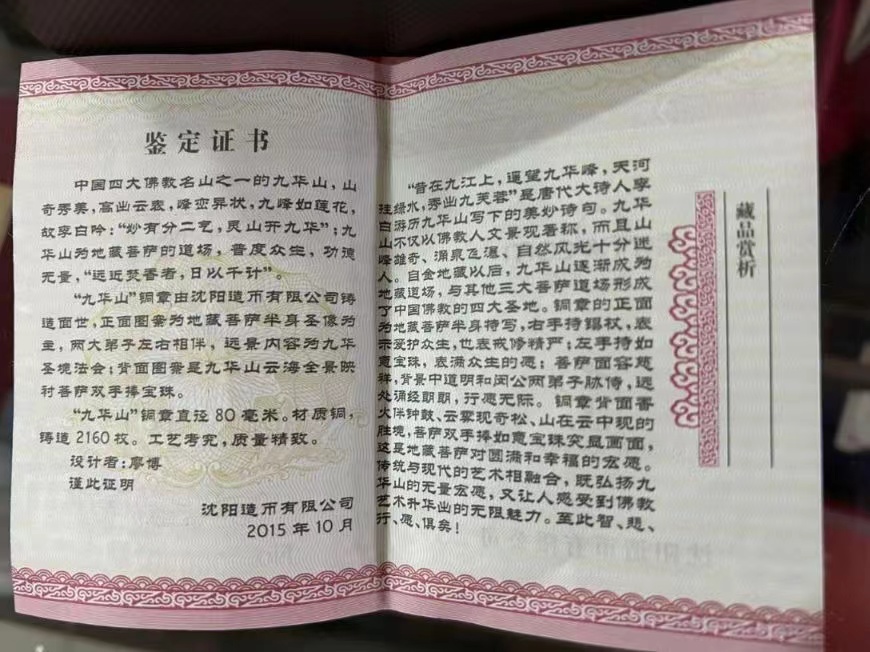 鉴定证书
中国四大佛教名山之一的九华山，山
奇秀美，高出云表，峰峦异状，九峰如莲花，
故李白吟：“妙有分二艺，灵山开九华”；九
华山为地藏菩萨的道场，普度众生，功德
无量，“远近焚香者，日以千计”。
“九华山”铜章由沈阳造币有限公司铸
造面世，正面图案为地藏菩萨半身圣像为
主，两大弟子左右相伴，远景内容为九华
圣境法会；背面图案是九华山云海全景映
衬菩萨双手捧宝珠。
“九华山”铜章直径80毫米。材质铜，
铸造2160枚。工艺考究，质量精致。
设计者：廖博
谨此证明
沈阳造币有限公司
2015年10月
藏品赏析
“昔在九江上，遥望九华峰，天河
挂绿水，秀出九芙蓉”是唐代大诗人李
白游历九华山写下的美妙诗句。九华
山不仅以佛教人文景观著称，而且山
峰雄奇、涌泉飞瀑，自然风光十分迷
人。自金地藏以后，九华山逐渐成为
地藏道场，与其他三大菩萨道场形成
了中国佛教的四大圣地。铜章的正面
为地藏菩萨半身特写，右手持锡杖，表
示爱护众生，也表戒修精严；左手持如
意宝珠，表满众生的愿；菩萨面容慈
祥，背景中道明和闵公两弟子胁侍，远
处诵经朗朗，行愿无际。铜章背面香
火伴钟鼓、云雾现奇松、山在云中现的
胜境，菩萨双手捧如意宝珠突显画面，
这是地藏菩萨对圆满和幸福的宏愿。
传统与现代的艺术相融合，既弘扬九
华山的无量宏愿，又让人感受到佛教
艺术升华出的无限魅力。至此智、悲、
行、愿、俱矣！